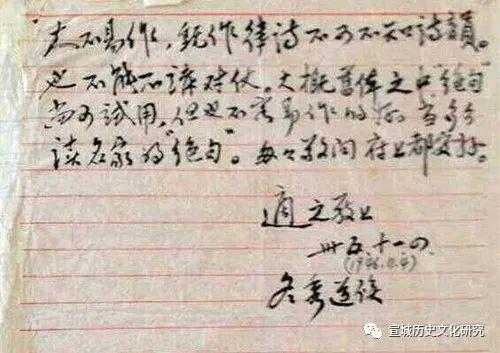 太不易作，既作律诗不可不知詩韻。
也不能不講对仗。大概舊体之中"绝句"
尚可試用，但也不容易作的好。当多多
读名家的"绝句"。匆々敬问 府上都安好。
適之敬上
卅五，十一，四
(1946.11.4)
冬秀道候
宣城历史文化研究